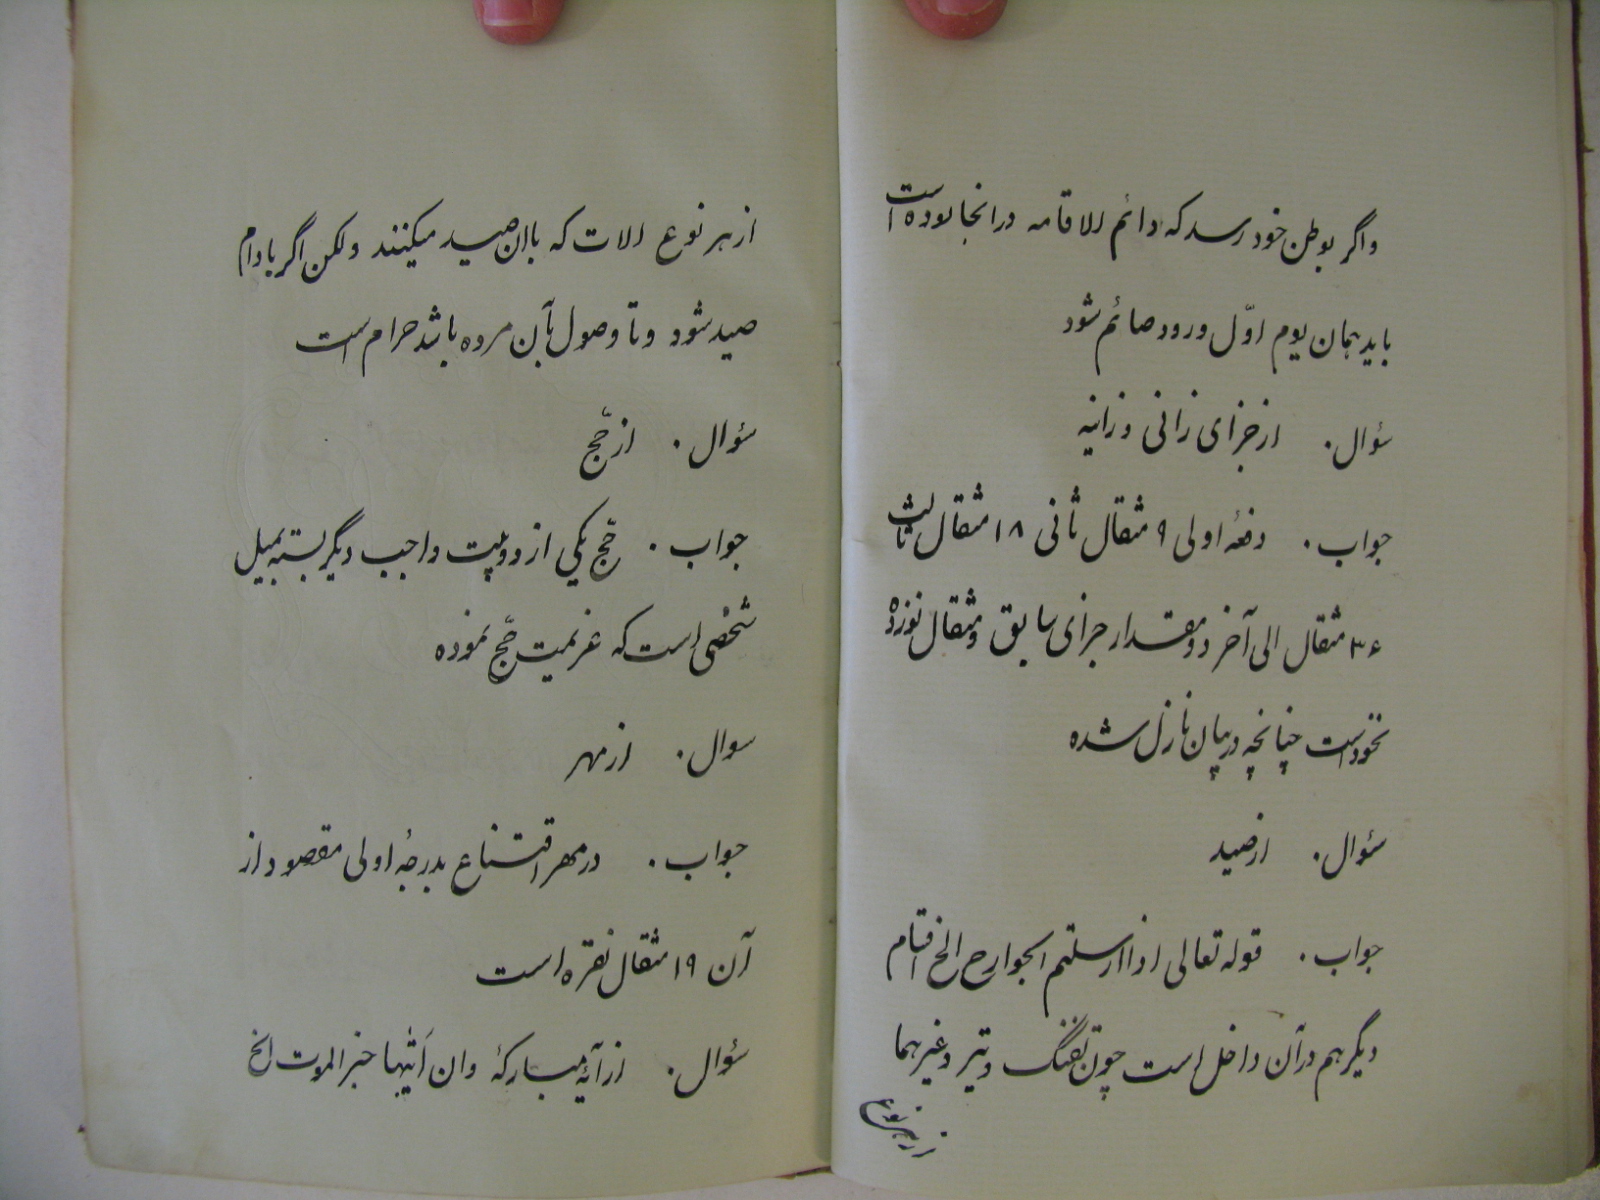 واگر بوطن خود رسد که دائم الاقامه درانجا بوده است
باید همان یوم اوّل ورود صائم شود
سؤال . از جزای زانی و زانیه
جواب . دفعهٔ اولی ۹ مثقال ثانی ۱۸ مثقال ثالث
۳۶ مثقال الی آخر دو مقدار جزای سابق و مثقال نوزده
نخود است چنانچه در بیان نازل شده
سؤال . از صید
جواب . قوله تعالی اذا ارسلتم الجوارح الخ اقسام
دیگر هم در آن داخل است چون تفنگ و تیر و غیرهما
از هر نوع
از هر نوع الات که باان صید میکنند ولکن اگر بادام
صید شود و تا وصول بآن مرده باشد حرام است
سؤال . از حّج
جواب . حّج یکی از دو بیت واجب دیگر بسته بمیل
شخصی است که عزیمت حّج نموده
سوال . از مهر
جواب . در مهر اقتناع بدرجهٔ اولی مقصود از
آن ۱۹ مثقال نقره است
سؤال . از آیهٔ مبارکهٔ وان اَتیٰها خبر الموت الخ